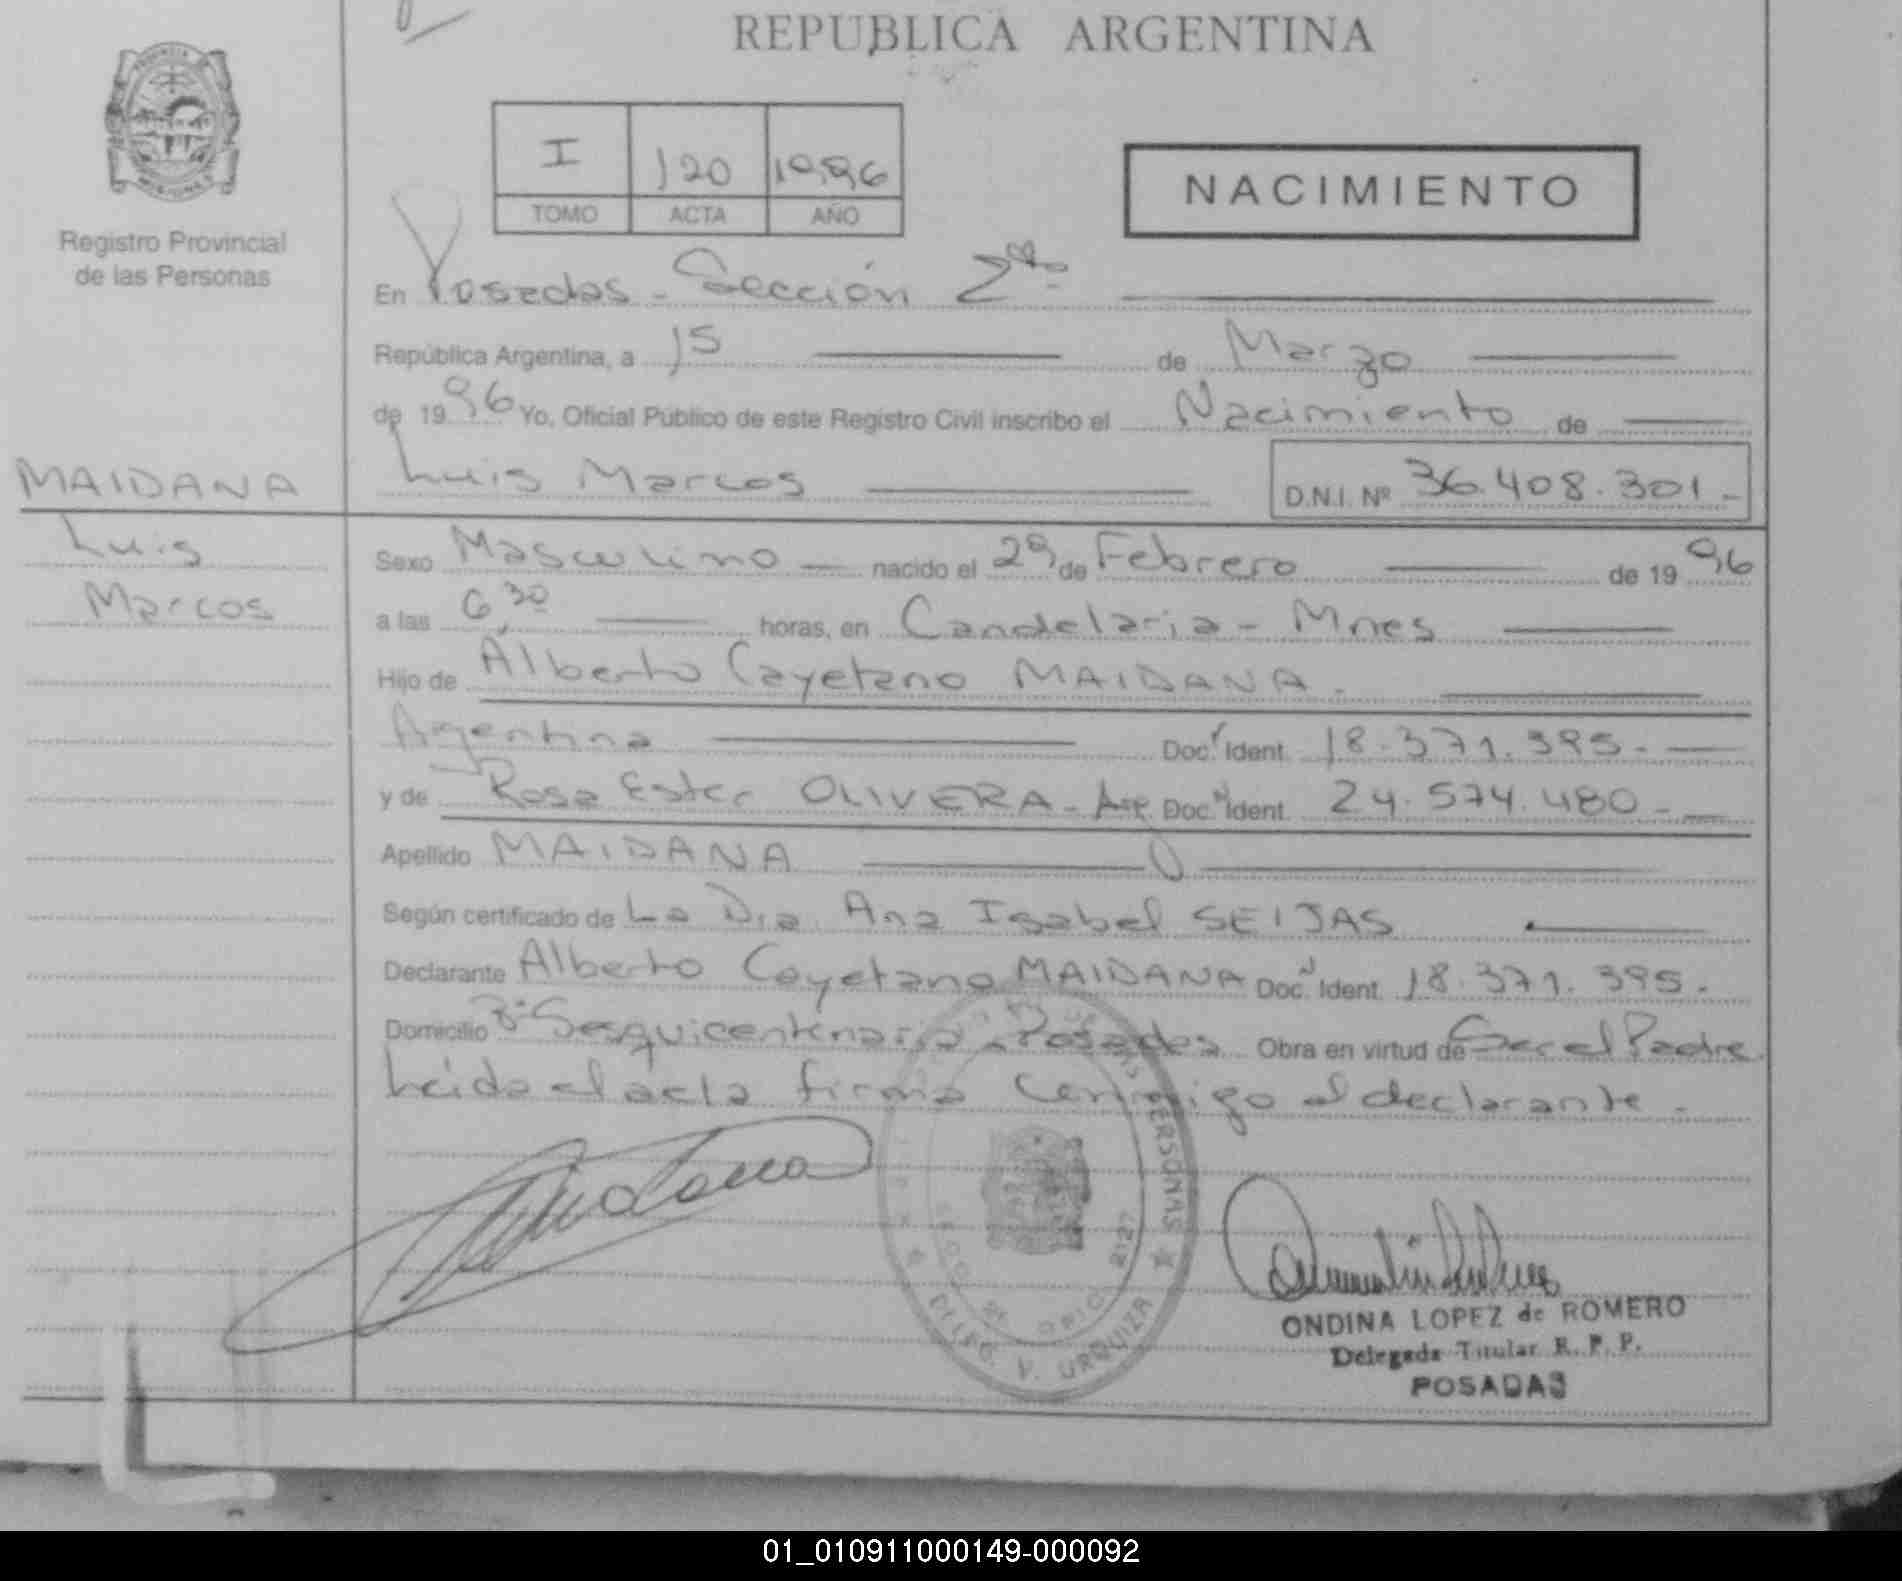 REPUBLICA ARGENTINA
Registro Provincial
de las Personas
I 120 1996
TOMO ACTA AÑO
NACIMIENTO
En Posadas - Sección 2da
República Argentina, a 15 de Marzo
de 1996 Yo, Oficial Público de este Registro Civil inscribo el Nacimiento de
MAIDANA
Luis
Marcos
Luis Marcos D.N.I. Nº 36.408.301.-
Sexo Masculino nacido el 29 de Febrero de 1996
a las 6 30 horas, en Candelaria - Mnes
Hijo de Alberto Cayetano MAIDANA.
Argentina Doc. Ident. 18.371.395.-
y de Rosa Ester OLIVERA - Arg. Doc. Ident. 24.574.480.-
Apellido MAIDANA
Según certificado de La Dra. Ana Isabel SEIJAS
Declarante Alberto Cayetano MAIDANA Doc. Ident. 18.371.395.
Domicilio Bº Sesquicentenario - Posadas Obra en virtud de Ser el Padre.
Leida el acta firma conmigo el declarante.-
PERSONAS
DELEG. V. URQUIZA
2127
ONDINA LOPEZ de ROMERO
Delegada Titular R. P. P.
POSADAS
01_010911000149-000092